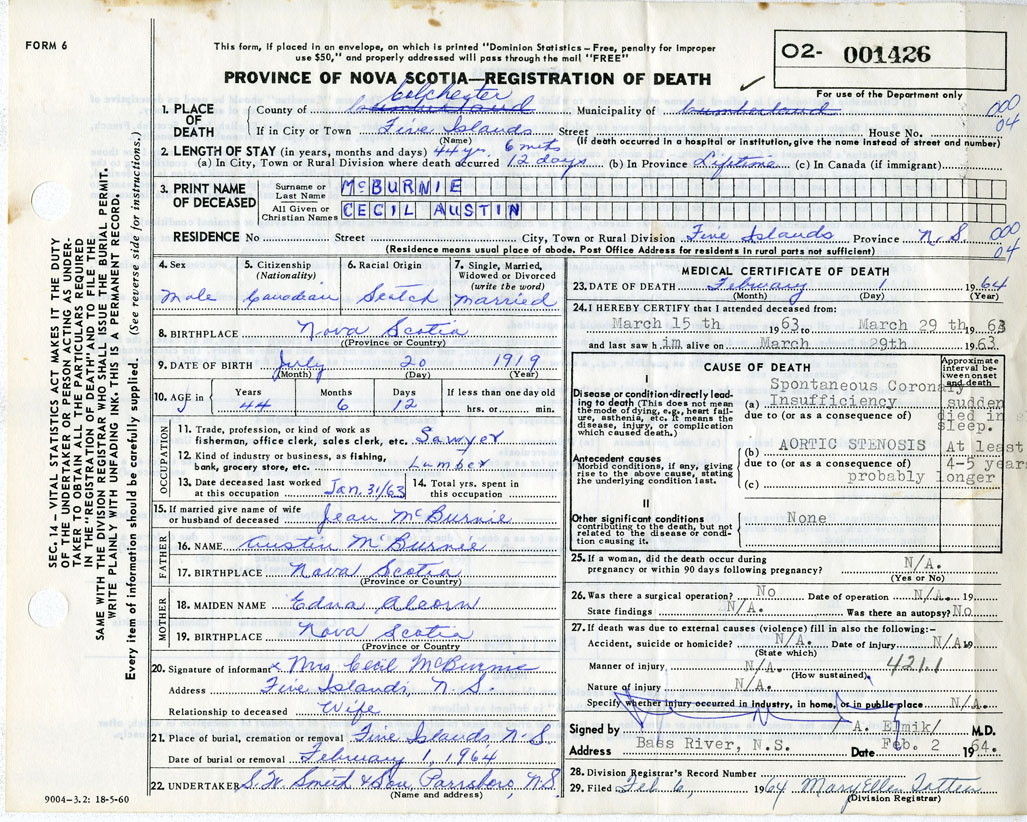 FORM 6
This form, if placed in an envelope, on which is printed "Dominion Statistics – Free, penalty for improper
use $50," and properly addressed will pass through the mail "FREE"
O2- 001426
For use of the Department only
PROVINCE OF NOVA SCOTIA—REGISTRATION OF DEATH
SEC. 14 – VITAL STATISTICS ACT MAKES IT THE DUTY
OF THE UNDERTAKER OR PERSON ACTING AS UNDER-
TAKER TO OBTAIN ALL THE PARTICULARS REQUIRED
IN THE "REGISTRATION OF DEATH" AND TO FILE THE
SAME WITH THE DIVISION REGISTRAR WHO SHALL ISSUE THE BURIAL PERMIT.
WRITE PLAINLY WITH UNFADING INK. THIS IS A PERMANENT RECORD.
Every item of information should be carefully supplied. (See reverse side for instructions.)
Colchester
1. PLACE OF DEATH County of Cumberland Municipality of Cumberland 000
If in City or Town Five Islands Street House No. 04
(Name) (If death occurred in a hospital or institution, give the name instead of street and number)
2. LENGTH OF STAY (in years, months and days) 44 yr. 6 mts
(a) In City, Town or Rural Division where death occurred 12 days (b) In Province Lifetime (c) In Canada (if immigrant)
3. PRINT NAME OF DECEASED Surname or Last Name McBURNIE
All Given or Christian Names CECIL AUSTIN
RESIDENCE No Street City, Town or Rural Division Five Islands Province N.S 000 04
(Residence means usual place of abode. Post Office Address for residents in rural parts not sufficient)
4. Sex 5. Citizenship (Nationality) 6. Racial Origin 7. Single, Married, Widowed or Divorced (write the word)
Male Canadian Scotch Married
8. BIRTHPLACE Nova Scotia
(Province or Country)
9. DATE OF BIRTH July 20 1919
(Month) (Day) (Year)
10. AGE in Years Months Days If less than one day old
44 6 12 hrs. or min.
OCCUPATION
11. Trade, profession or kind of work as
fisherman, office clerk, sales clerk, etc. Sawyer
12. Kind of industry or business, as fishing,
bank, grocery store, etc. Lumber
13. Date deceased last worked at this occupation Jan. 31/63 14. Total yrs. spent in this occupation
15. If married give name of wife
or husband of deceased Jean McBurnie
FATHER
16. NAME Austin McBurnie
17. BIRTHPLACE Nova Scotia
(Province or Country)
MOTHER
18. MAIDEN NAME Edna Alcorn
19. BIRTHPLACE Nova Scotia
(Province or Country
20. Signature of informant x Mrs Cecil McBurnie
Address Five Islands, N.S.
Relationship to deceased Wife
21. Place of burial, cremation or removal Five Islands N.S
Date of burial or removal February 1, 1964
22. UNDERTAKER S.W. Smith & Son, Parrsboro, N.S.
(Name and address)
9004–3.2: 18-5-60
MEDICAL CERTIFICATE OF DEATH
23. DATE OF DEATH February 1 1964
(Month) (Day) (Year)
24. I HEREBY CERTIFY that I attended deceased from:
March 15 th 1963 to March 29 th 1963
and last saw him alive on March 29th 1963.
CAUSE OF DEATH
Approximate interval between onset and death
I
Disease or condition directly leading to death (This does not mean the mode of dying, e.g., heart failure, asthenia, etc. It means the disease, injury, or complication which caused death.)
Spontaneous Coronary
(a) Insufficiency sudden
due to (or as a consequence of) died in
sleep.
Antecedent causes
Morbid conditions, if any, giving rise to the above cause, stating the underlying condition last.
(b) AORTIC STENOSIS At least
due to (or as a consequence of) 4-5 years
(c) probably longer
II
Other significant conditions
contributing to the death, but not related to the disease or condition causing it.
None
25. If a woman, did the death occur during
pregnancy or within 90 days following pregnancy? N/A.
(Yes or No)
26. Was there a surgical operation? No Date of operation N/A. 19
State findings N/A. Was there an autopsy? No
27. If death was due to external causes (violence) fill in also the following:–
Accident, suicide or homicide? N/A. Date of injury N/A 19
(State which)
Manner of injury N/A. 421.1
(How sustained)
Nature of injury N/A.
Specify whether injury occurred in industry, in home, or in public place N/A.
Signed by A. Elmik/ M.D.
Address Bass River, N.S. Date Feb. 2 1964.
28. Division Registrar's Record Number
29. Filed Feb 6, 1964 Mary Ellen Totten
(Division Registrar)